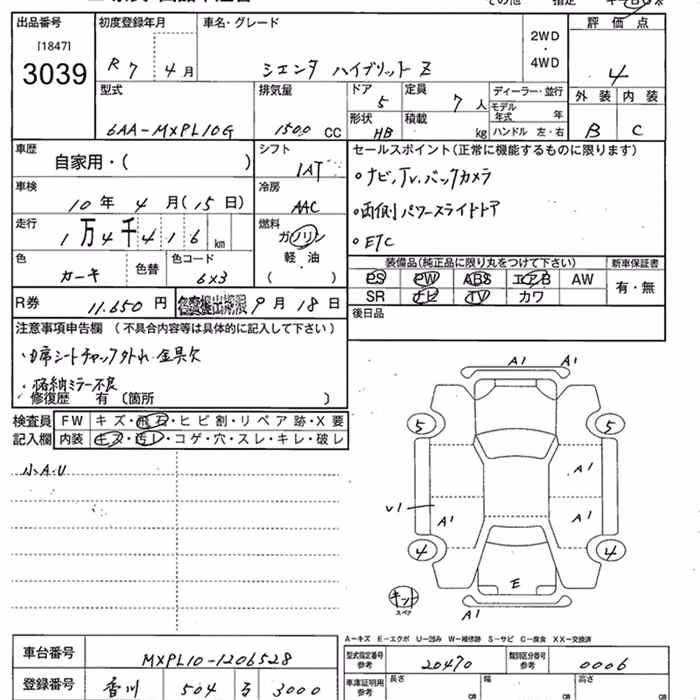 出品番号
[1847]
3039
初度登録年月
R 7 4 月
車名・グレード
シエンタ ハイブリット Z
2WD
・
4WD
評価点
4
外装 内装
B C
型式
6AA-MXPL10G
排気量
1500 CC
ドア
5
形状
HB
定員
7 人
積載
kg
ディーラー・並行
モデル年式 年
ハンドル 左・右
車歴
自家用・( )
シフト
1AT
セールスポイント(正常に機能するものに限ります)
・ナビ,Tv.バックカメラ
・両側パワースライドドア
・ETC
車検
10 年 4 月(15 日)
冷房
AAC
走行
1 万 4 千 4 1 6 km
燃料
ガソリン
軽・油
( )
色
カーキ
色替
色コード
6X3
装備品(純正品に限り丸をつけて下さい)
PS PW ABS エアB AW
SR ナビ TV カワ
新車保証書
有・無
R券
11.650 円
9 月 18 日
後日品
注意事項申告欄 (不具合内容等は具体的に記入して下さい)
・格納ミラー不良
修復歴 有 〔箇所 〕
検査員記入欄
FW キズ・飛石・ヒビ割・リペア跡・X要
内装 キズ・汚レ・コゲ・穴・スレ・キレ・破レ
小A.U
A1 A1
5 5
A1
V1 A1 A1
4 4
E
キット
スペア
A1
A-キズ E-エクボ U-凹み W-補修跡 S-サビ C-腐食 XX-交換済
車台番号
MXPL10-1206528
型式指定番号
参考
20470
類別区分番号
参考
0006
登録番号
香川 504 る 3000
車庫証明用
参考
長さ
CM
幅
CM
高さ
CM